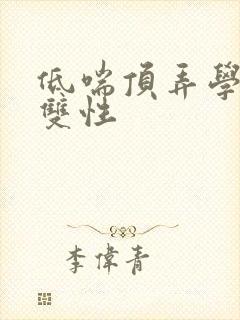 低喘頂弄學
雙性
李偉青